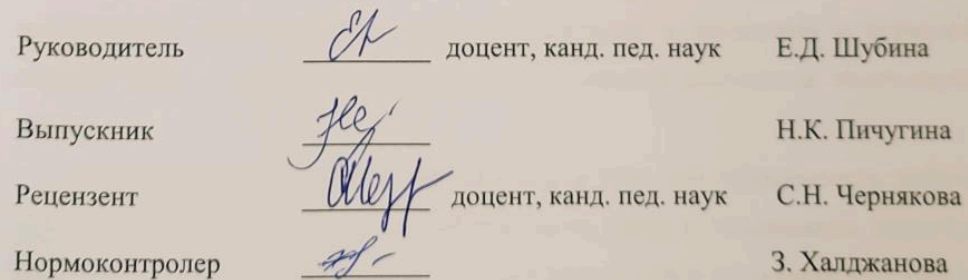 Руководитель доцент, канд. пед. наук Е.Д. Шубина
Выпускник Н.К. Пичугина
Рецензент доцент, канд. пед. наук С.Н. Чернякова
Нормоконтролер З. Халджанова